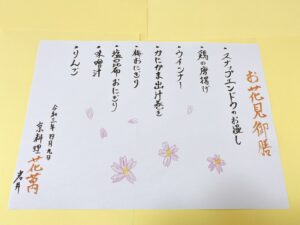 お花見御膳
・スナップエンドウのお浸し
・鶏の唐揚げ
・ウインナー
・かにかま出汁巻き
・梅おにぎり
・塩昆布おにぎり
・味噌汁
・りんご
令和三年四月九日
京料理 花萬
岩井